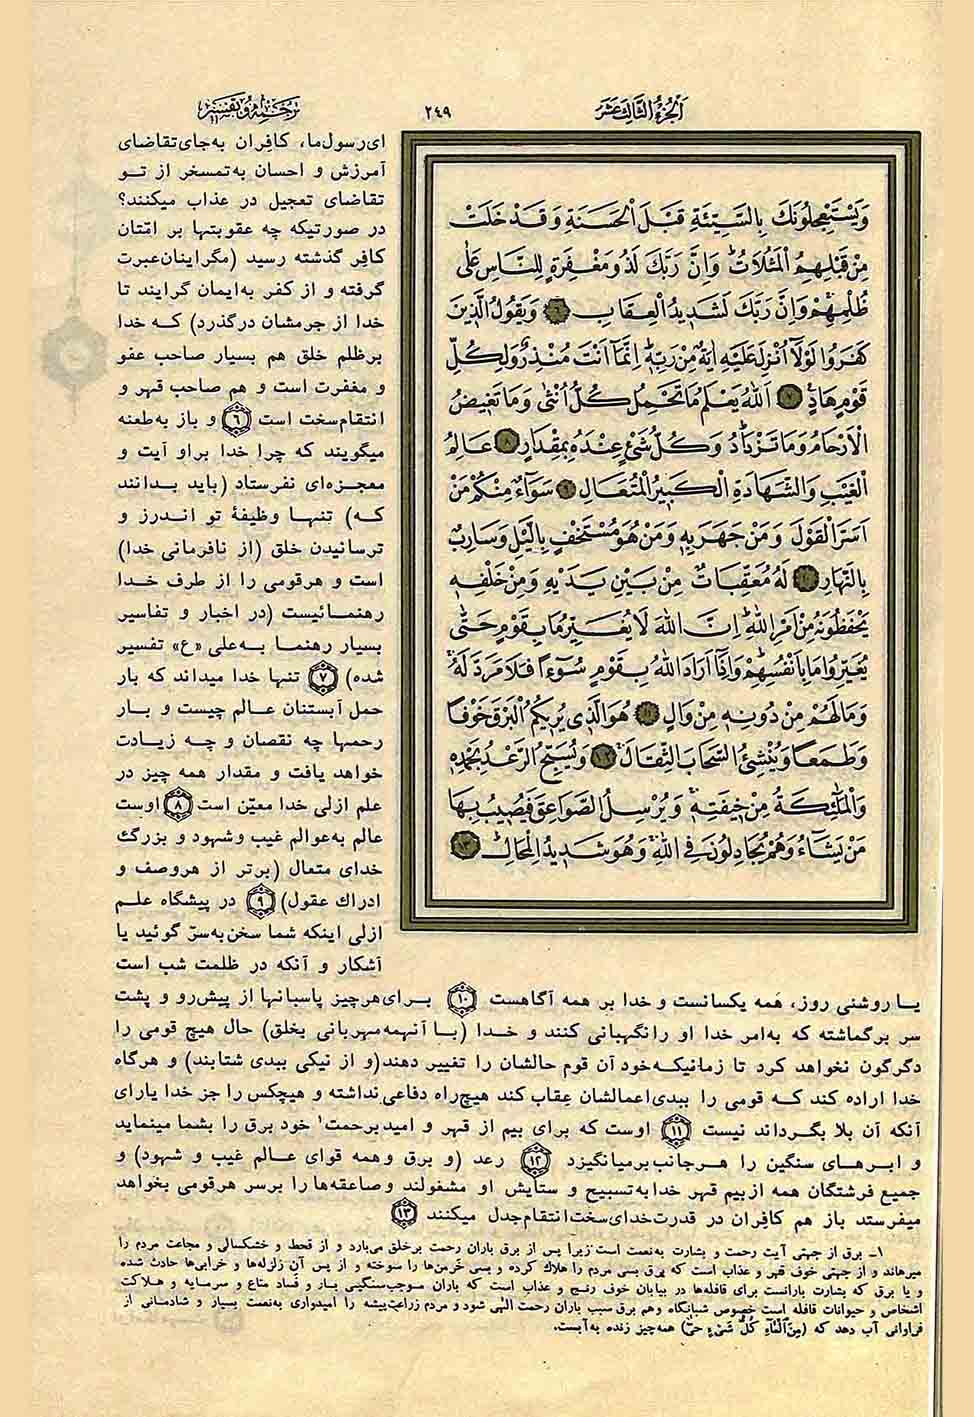 الجزء الثالث عشر
٢٤٩
ترجمه و تفسیر
وَيَسْتَعْجِلُونَكَ بِالسَّيِّئَةِ قَبْلَ الْحَسَنَةِ وَقَدْ خَلَتْ
مِنْ قَبْلِهِمُ الْمَثُلَاتُ وَإِنَّ رَبَّكَ لَذُو مَغْفِرَةٍ لِلنَّاسِ عَلَى
ظُلْمِهِمْ وَإِنَّ رَبَّكَ لَشَدِيدُ الْعِقَابِ ٦ وَيَقُولُ الَّذِينَ
كَفَرُوا لَوْلَا أُنْزِلَ عَلَيْهِ آيَةٌ مِنْ رَبِّهِ إِنَّمَا أَنْتَ مُنْذِرٌ وَلِكُلِّ
قَوْمٍ هَادٍ ٧ اَللّٰهُ يَعْلَمُ مَا تَحْمِلُ كُلُّ أُنْثَى وَمَا تَغِيضُ
الْأَرْحَامُ وَمَا تَزْدَادُ وَكُلُّ شَيْءٍ عِنْدَهُ بِمِقْدَارٍ ٨ عَالِمُ
الْغَيْبِ وَالشَّهَادَةِ الْكَبِيرُ الْمُتَعَالِ ٩ سَوَاءٌ مِنْكُمْ مَنْ
أَسَرَّ الْقَوْلَ وَمَنْ جَهَرَ بِهِ وَمَنْ هُوَ مُسْتَخْفٍ بِاللَّيْلِ وَسَارِبٌ
بِالنَّهَارِ ١٠ لَهُ مُعَقِّبَاتٌ مِنْ بَيْنِ يَدَيْهِ وَمِنْ خَلْفِهِ
يَحْفَظُونَهُ مِنْ أَمْرِ اللّٰهِ إِنَّ اللّٰهَ لَا يُغَيِّرُ مَا بِقَوْمٍ حَتَّى
يُغَيِّرُوا مَا بِأَنْفُسِهِمْ وَإِذَا أَرَادَ اللّٰهُ بِقَوْمٍ سُوءًا فَلَا مَرَدَّ لَهُ
وَمَا لَهُمْ مِنْ دُونِهِ مِنْ وَالٍ ١١ هُوَ الَّذِي يُرِيكُمُ الْبَرْقَ خَوْفًا
وَطَمَعًا وَيُنْشِئُ السَّحَابَ الثِّقَالَ ١٢ وَيُسَبِّحُ الرَّعْدُ بِحَمْدِهِ
وَالْمَلَائِكَةُ مِنْ خِيفَتِهِ وَيُرْسِلُ الصَّوَاعِقَ فَيُصِيبُ بِهَا
مَنْ يَشَاءُ وَهُمْ يُجَادِلُونَ فِي اللّٰهِ وَهُوَ شَدِيدُ الْمِحَالِ ١٣
ای رسول ما، کافران به جای تقاضای
آمرزش و احسان به تمسخر از تو
تقاضای تعجیل در عذاب میکنند؟
در صورتیکه چه عقوبتها بر امّتان
کافر گذشته رسید (مگر اینان عبرت
گرفته و از کفر به ایمان گرایند تا
خدا از جرمشان درگذرد) که خدا
بر ظلم خلق هم بسیار صاحب عفو
و مغفرت است و هم صاحب قهر و
انتقام سخت است ٦ و باز به طعنه
میگویند که چرا خدا بر او آیت و
معجزه‌ای نفرستاد (باید بدانند
که) تنها وظیفهٔ تو اندرز و
ترسانیدن خلق (از نافرمانی خدا)
است و هر قومی را از طرف خدا
رهنمائیست (در اخبار و تفاسیر
بسیار رهنما به علی «ع» تفسیر
شده) ٧ تنها خدا میداند که بار
حمل آبستنان عالم چیست و بار
رحمها چه نقصان و چه زیادت
خواهد یافت و مقدار همه چیز در
علم ازلی خدا معیّن است ٨ اوست
عالم به عوالم غیب و شهود و بزرگ
خدای متعال (برتر از هر وصف و
ادراک عقول) ٩ در پیشگاه علم
ازلی اینکه شما سخن به سرّ گوئید یا
آشکار و آنکه در ظلمت شب است
یا روشنی روز، همه یکسانست و خدا بر همه آگاهست ١٠ برای هر چیز پاسبانها از پیش رو و پشت
سر برگماشته که به امر خدا او را نگهبانی کنند و خدا (با آنهمه مهربانی بخلق) حال هیچ قومی را
دگرگون نخواهد کرد تا زمانیکه خود آن قوم حالشان را تغییر دهند (و از نیکی ببدی شتابند) و هرگاه
خدا اراده کند که قومی را ببدی اعمالشان عِقاب کند هیچ راه دفاعی نداشته و هیچکس را جز خدا یارای
آنکه آن بلا بگرداند نیست ١١ اوست که برای بیم از قهر و امید بر حمت۱ خود برق را بشما مینماید
و ابرهای سنگین را هر جانب برمیانگیزد ١٢ رعد (و برق و همه قوای عالم غیب و شهود) و
جمیع فرشتگان همه از بیم قهر خدا به تسبیح و ستایش او مشغولند و صاعقه‌ها را بر سر هر قومی بخواهد
میفرستد باز هم کافران در قدرت خدای سخت انتقام جدل میکنند ١٣
۱ـ برق از جهتی آیت رحمت و بشارت به نعمت است زیرا پس از برق باران رحمت بر خلق می‌بارد و از قحط و خشکسالی و مجاعت مردم را
میرهاند و از جهتی خوف قهر و عذاب است که برق بسی مردم را هلاک کرده و بسی خرمن‌ها را سوخته و از پس آن زلزله‌ها و خرابی‌ها حادث شده
و یا برق که بشارت بارانست برای قافله‌ها در بیابان خوف رنج و عذاب است که باران موجب سنگینی بار و فساد متاع و سرمایه و هلاکت
اشخاص و حیوانات قافله است خصوص شبانگاه و هم برق سبب باران رحمت الهی شود و مردم زراعت پیشه را امیدواری به نعمت بسیار و شادمانی از
فراوانی آب دهد که (مِنَ الْمَاءِ كُلَّ شَيْءٍ حَيّ) همه چیز زنده به آبست.